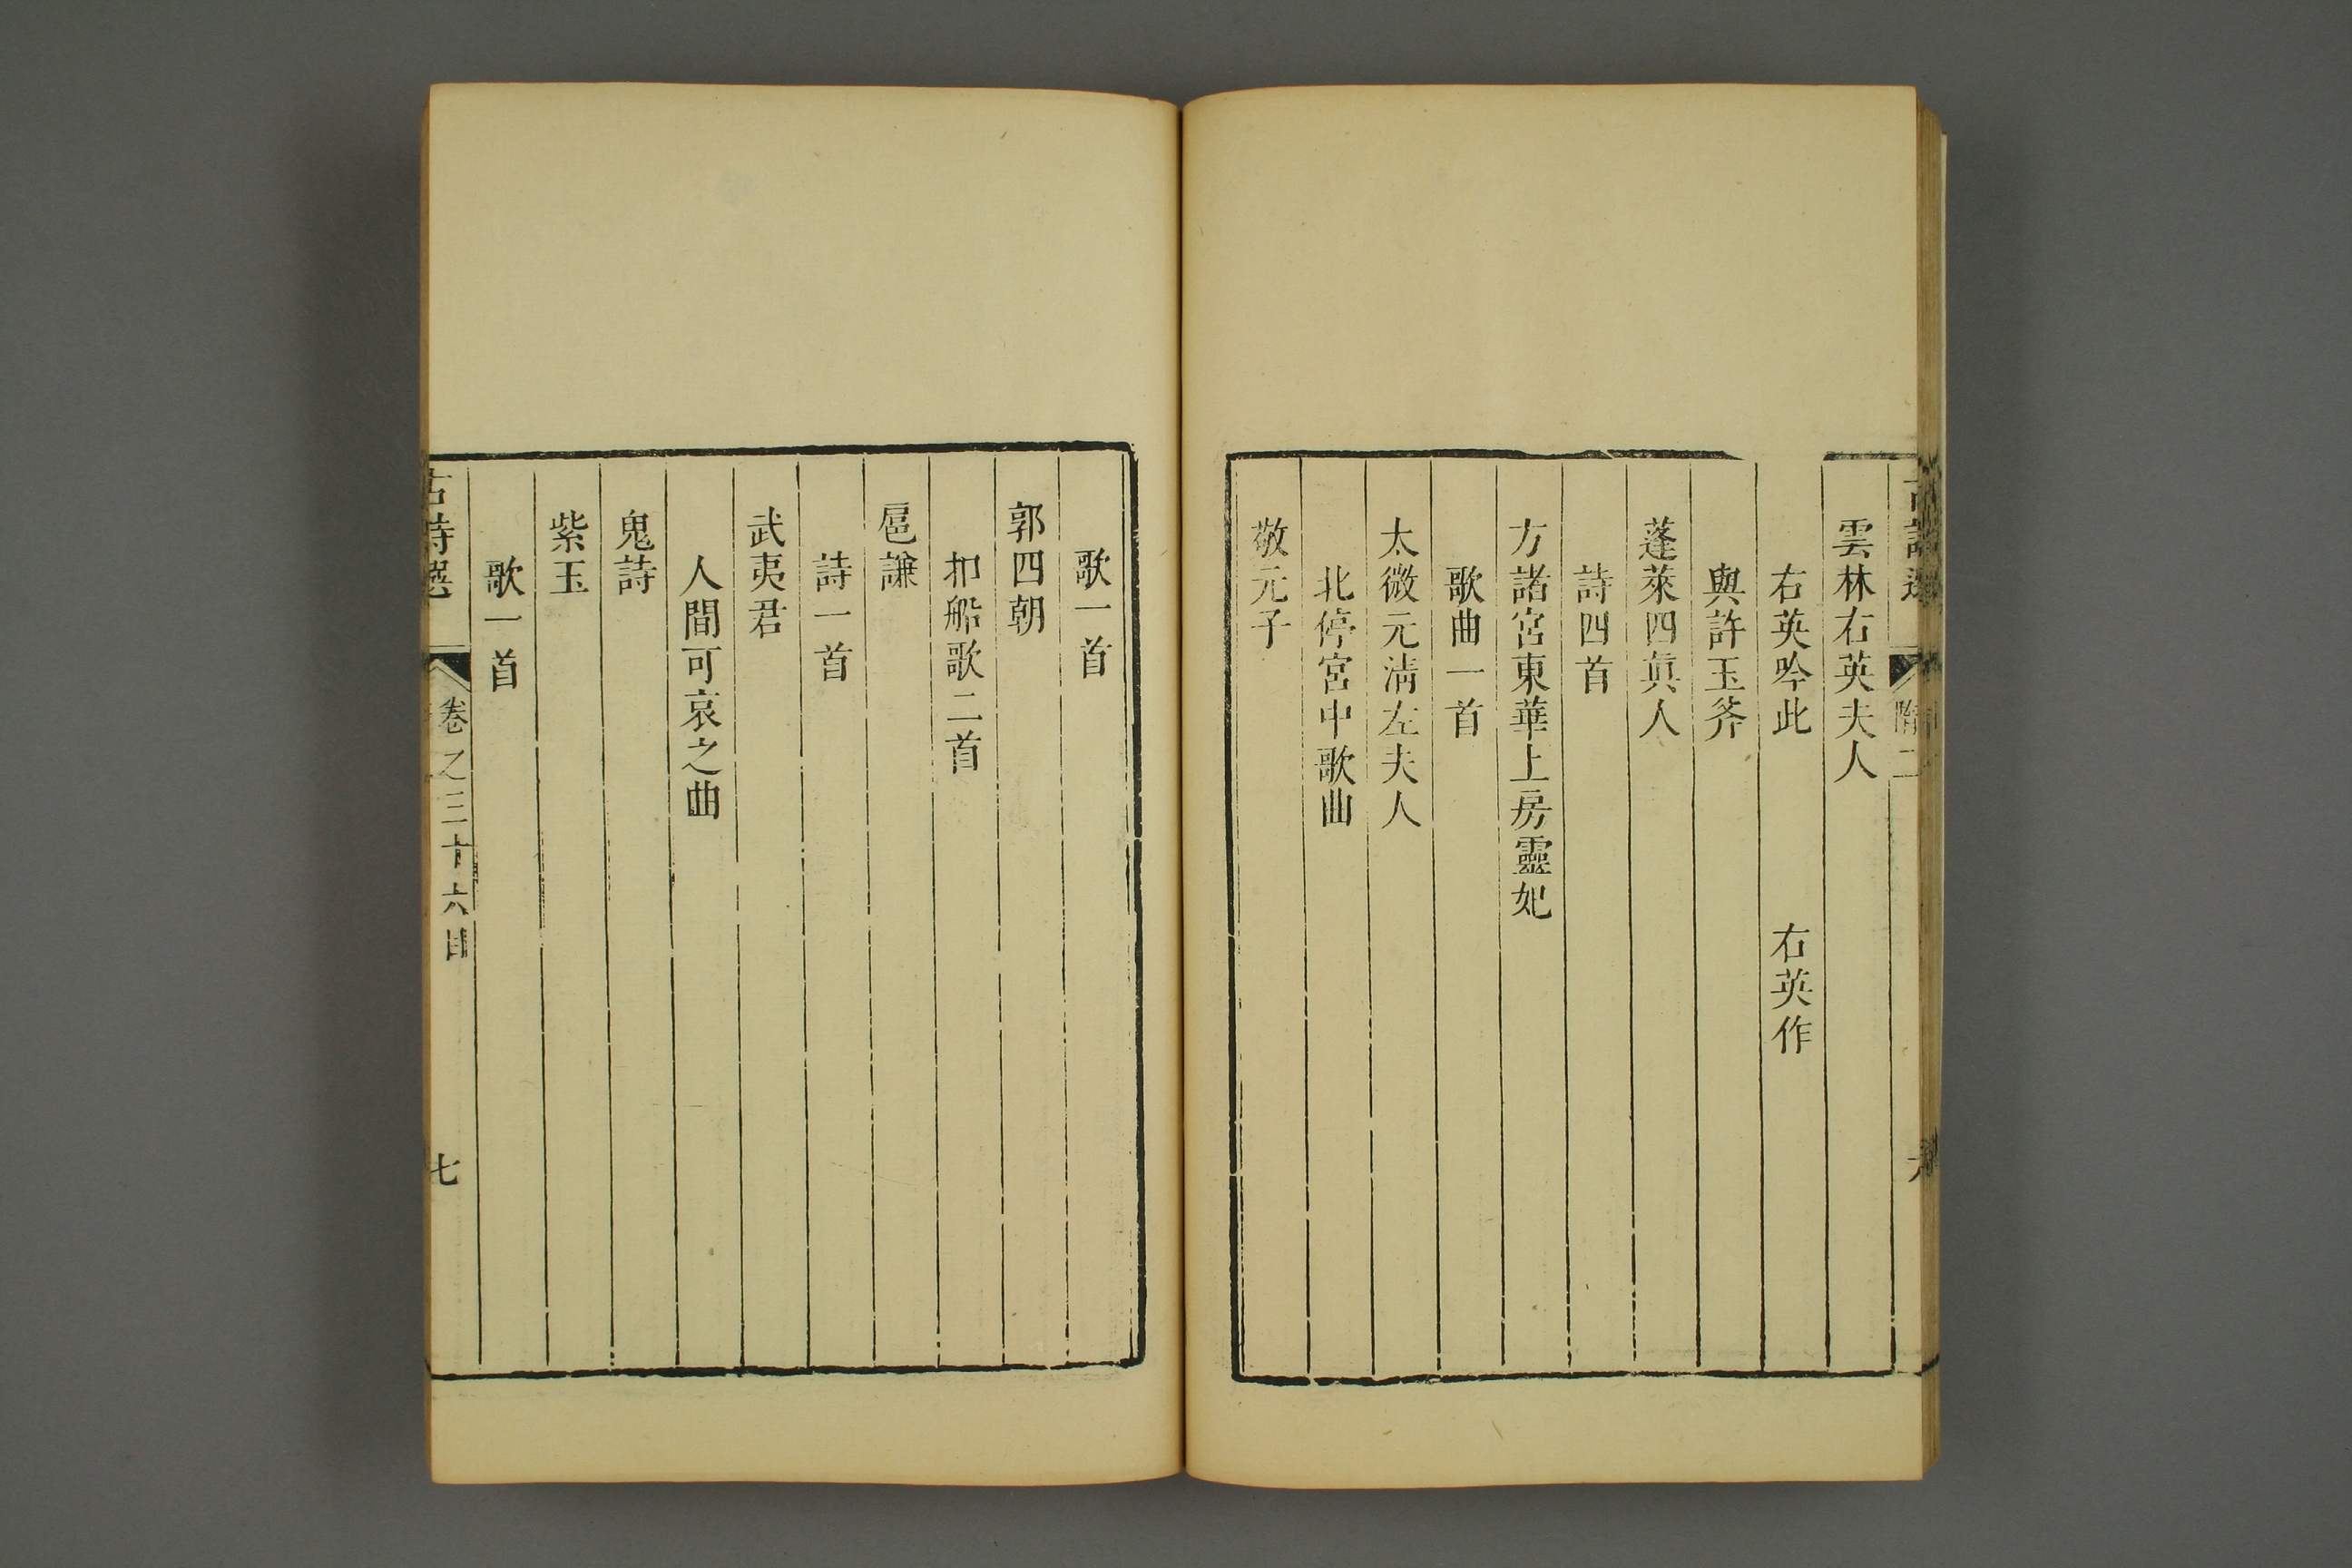 雲林右英夫人
右英吟此　右英作
與許玉斧
蓬萊四眞人
詩四首
方諸宮東華上房靈妃
歌曲一首
太微元淸左夫人
北停宮中歌曲
敬元子
歌一首
郭四朝
扣船歌二首
扈謙
詩一首
武夷君
人間可哀之曲
鬼詩
紫玉
歌一首
古詩選　卷之三十六目　七